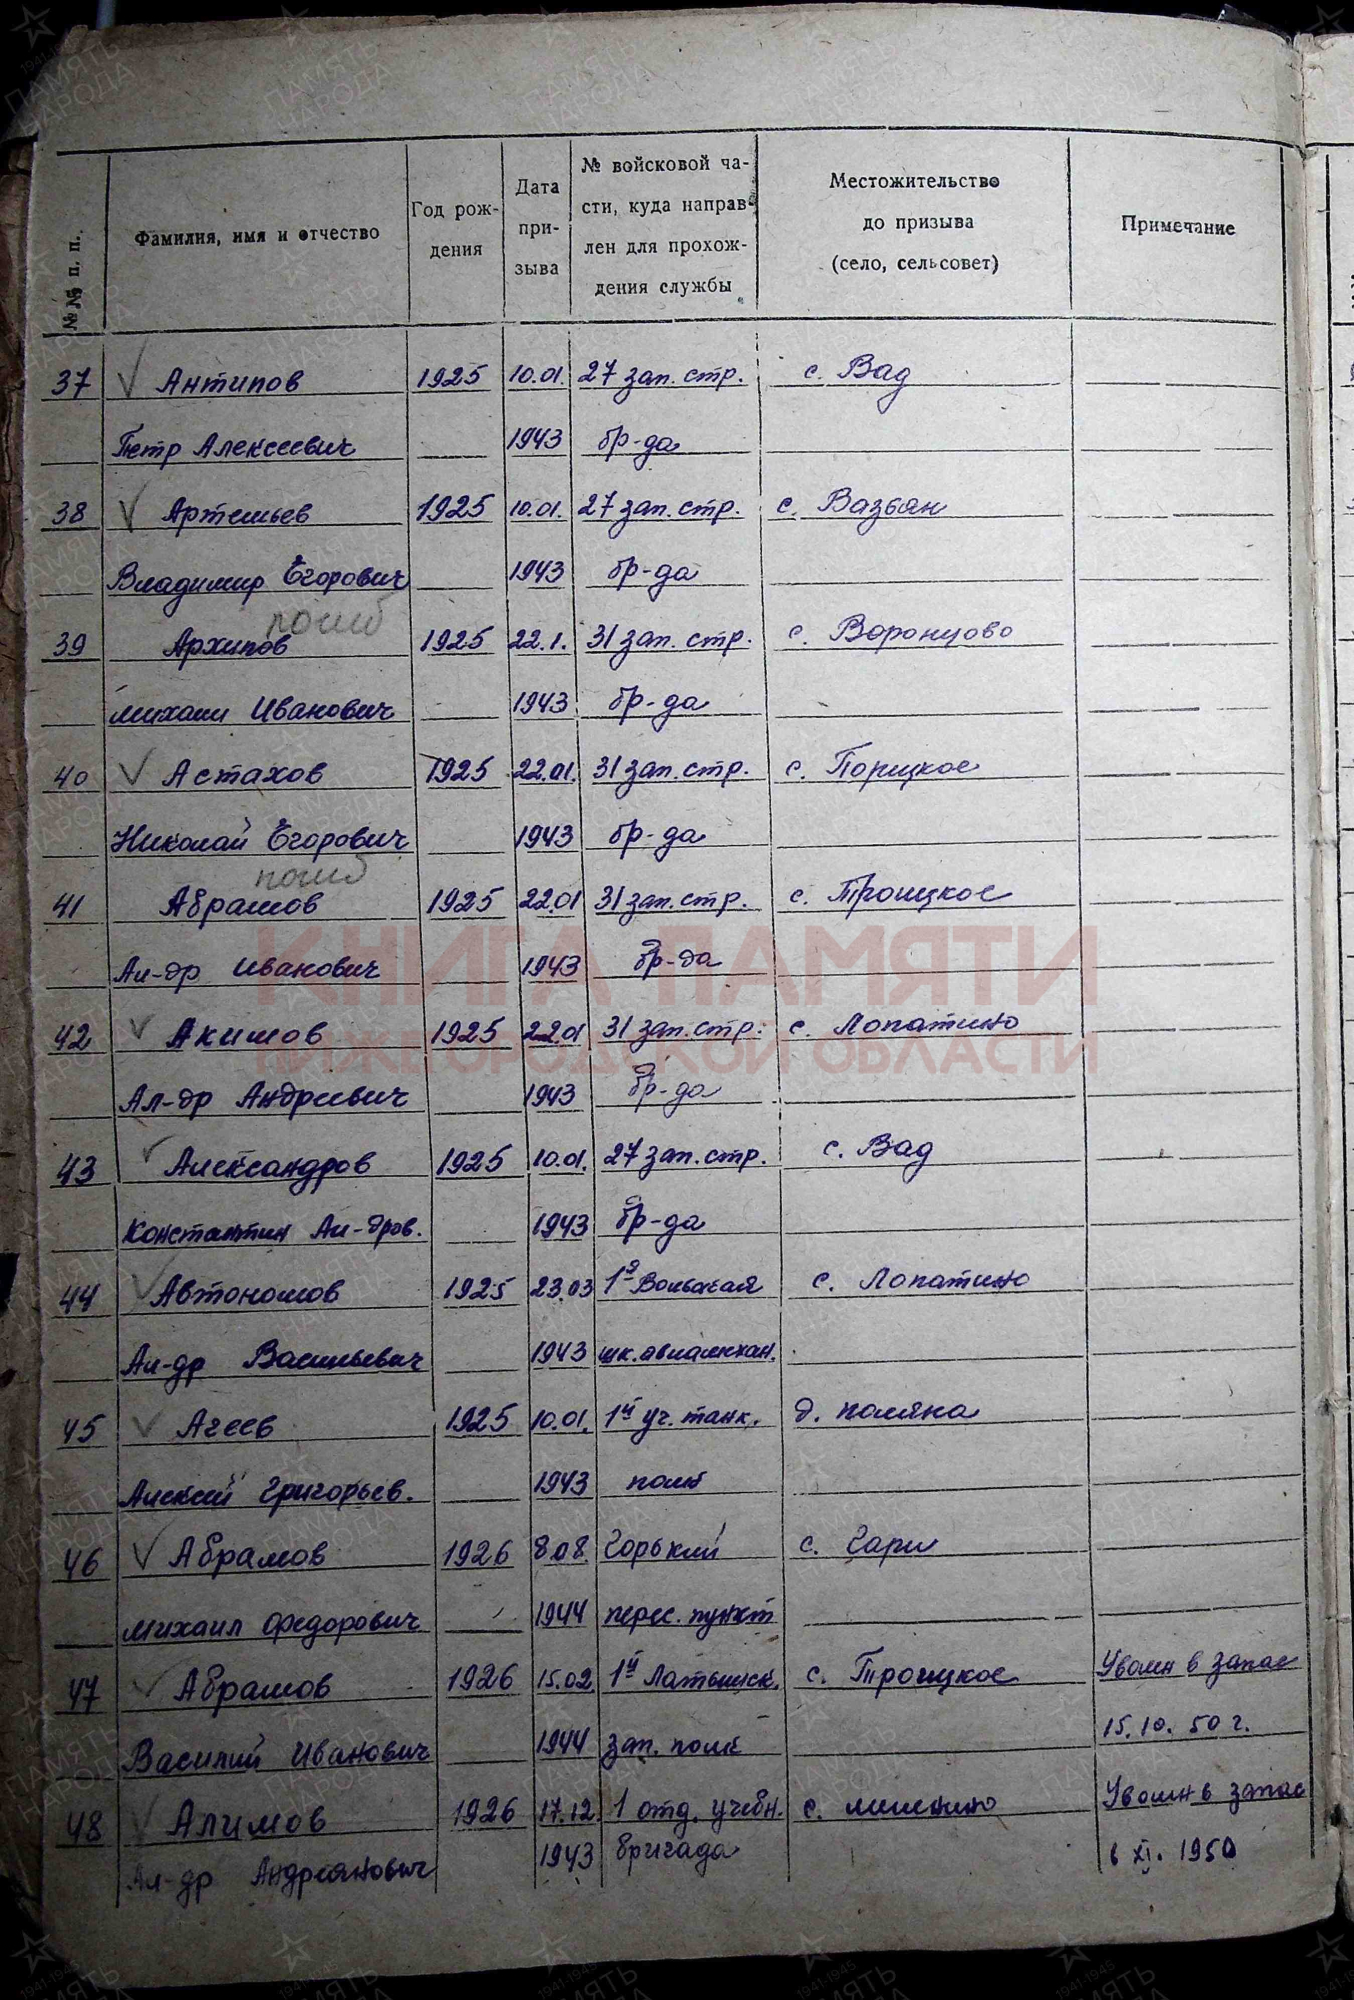 №№ п. п. Фамилия, имя и отчество Год рождения Дата призыва № войсковой части, куда направлен для прохождения службы Местожительство до призыва (село, сельсовет) Примечание
37 Антипов 1925 10.01. 27 зап. стр. с. Вад
Петр Алексеевич 1943 бр-да
38 Артемьев 1925 10.01. 27 зап. стр. с. Вазьян
Владимир Егорович 1943 бр-да
погиб
39 Архипов 1925 22.1. 31 зап. стр. с. Воронцово
Михаил Иванович 1943 бр-да
40 Астахов 1925 22.01. 31 зап. стр. с. Порецкое
Николай Егорович 1943 бр-да
погиб
41 Абрамов 1925 22.01 31 зап. стр. с. Троицкое
Ал-др Иванович 1943 бр-да
КНИГА ПАМЯТИ
42 Акимов 1925 22.01 31 зап. стр. с. Лопатино
НИЖЕГОРОДСКОЙ ОБЛАСТИ
Ал-др Андреевич 1943 бр-да
43 Александров 1925 10.01. 27 зап. стр. с. Вад
Константин Ал-дров. 1943 бр-да
44 Автономов 1925 23.03 1я Вольская с. Лопатино
Ал-др Васильевич 1943 шк. авиамехан.
45 Агеев 1925 10.01. 1й уч. танк. д. Поляна
Алексей Григорьев. 1943 полк
46 Абрамов 1926 8.08 Горький с. Гари
Михаил Федорович 1944 перес. пункт
47 Абрамов 1926 15.02 1й Латышск. с. Троицкое Уволен в запас
Василий Иванович 1944 зап. полк 15.10.50 г.
48 Алимов 1926 17.12. 1 отд. учебн. с. Уволен в запас
Ал-др Андреянович 1943 бригада 6 XI. 1950